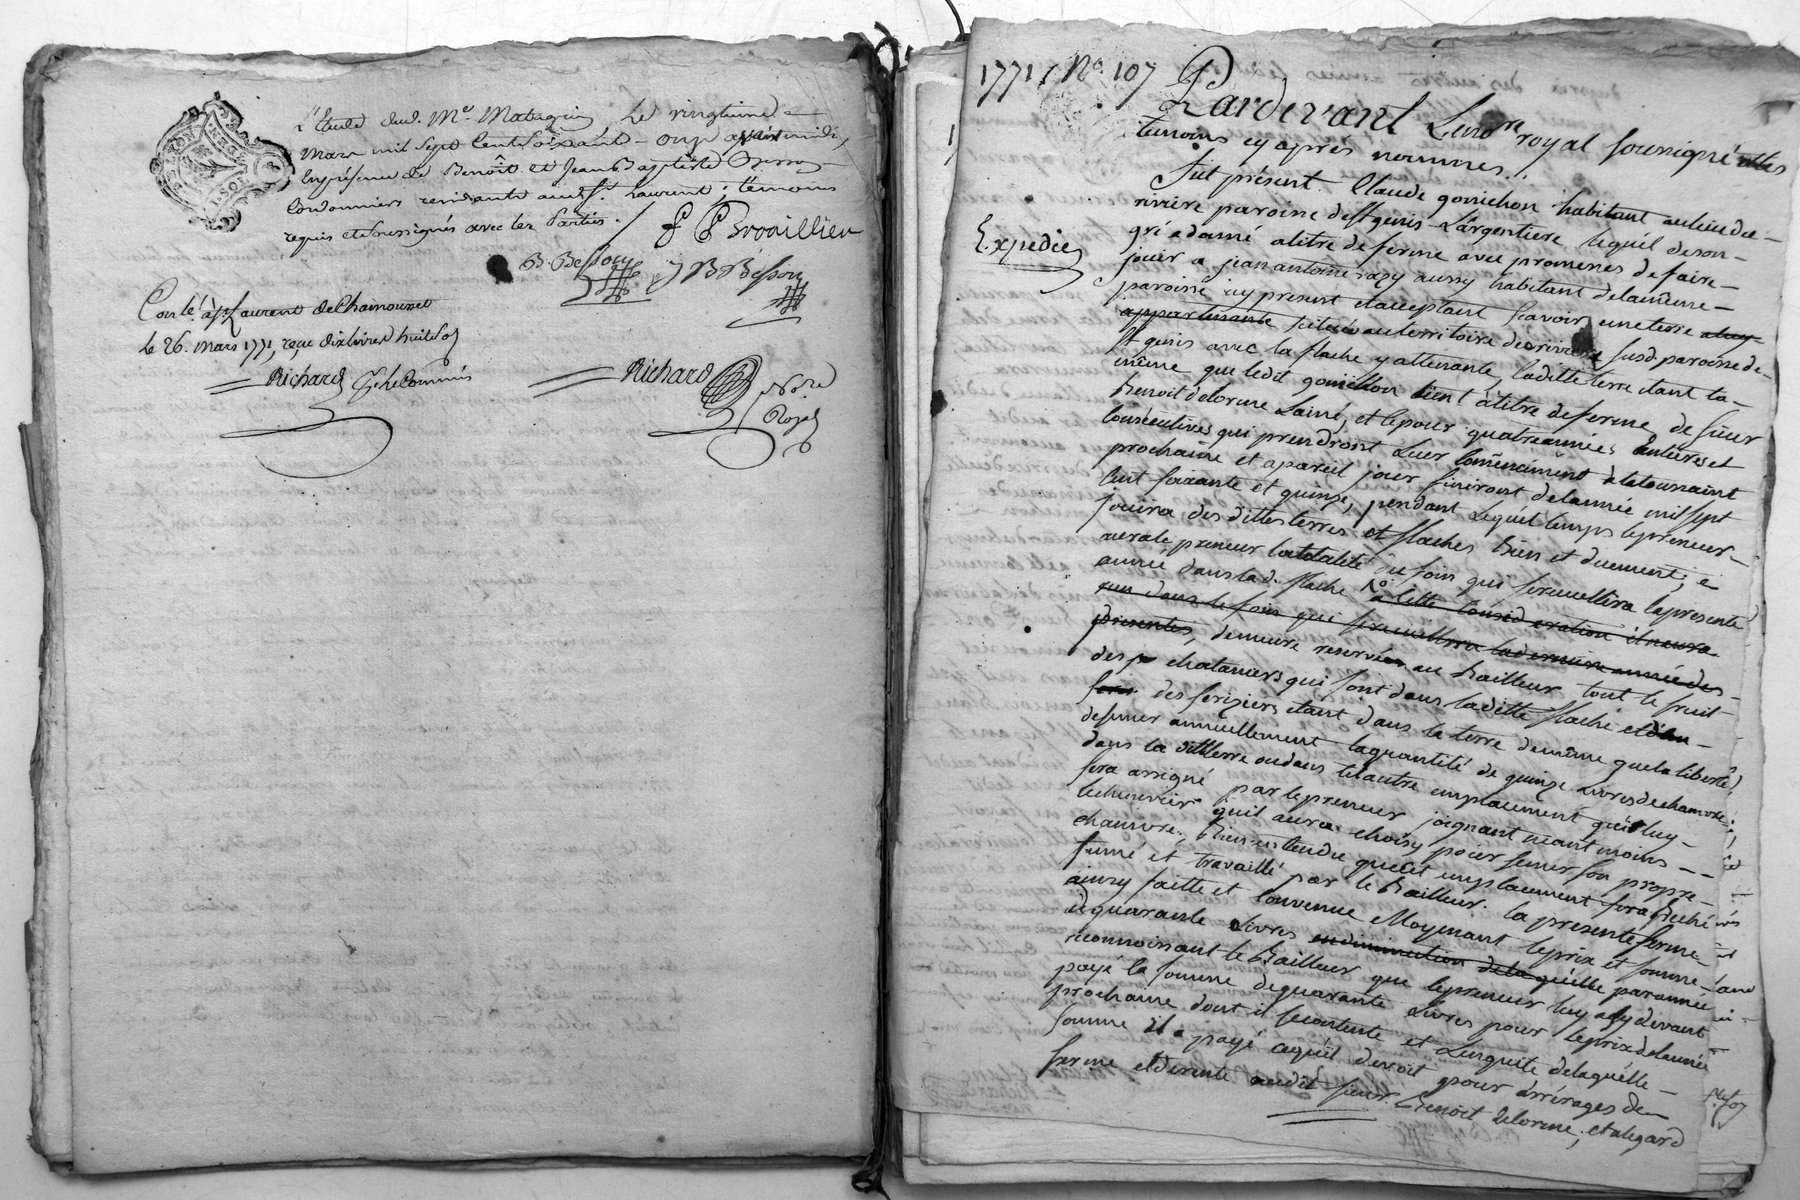 L'Etude dud. Me. Matagrin le vingtieme
Mars mil sept cent soixante-onze avant midi,
En présence de Benoît et Jean Baptiste Besson
Cordonniers residants aud. St. Laurent, témoins
requis et soussignés avec les Parties.
P Brouillieu
B. Besson J B Besson
Conlé. à St Laurent de Chamousset
Le 26. Mars 1771, reçu dix livres huit sols
Richard Richard
Nore
Royal
1771 / No. 107
Expediée
Pardevant Le no.re royal soussigné et les
temoins cy après nommés.
Fut présent Claude gonichon habitant au lieu de
riviére paroisse de St genis L'argentiere lequel de son
gré a donné a titre de ferme avec promesses de faire
jouir a jean antoine razy aussy habitant de la même
paroisse cy present et acceptant Savoir une terre
appartenante située au territoire de riviere susd. paroisse de
St genis avec la flache y attenante, laditte terre etant la
même que ledit gonichon tient à titre de ferme de sieur
Benoit delorme Lainé, et ce pour quatre années entieres et
consécutives qui prendront Leur commencement a la toussaint
prochaine et a pareil jour finiront de lannée mil sept
cent soixante et quinze, pendant Lequel temps le preneur
jouira des dittes terres et flaches bien et duement, e
aura le preneur la totalité du foin qui se recuellira la presente
année dans lad. flache a cette consideration il n'aura
rien dans le foin qui se recuellira la derniere année des
presentes, demeure reservée au bailleur tout le fruit
des chataniers qui sont dans laditte flache et
des seriziers etant dans la terre de même que la liberté
de semer annuellement la quantité de quinze livres de chanvre
dans la ditte terre ou dans tel autre emplacement qui luy
sera assigné par le preneur joignant neant moins
le chenevier qu'il aura choisy pour semer son propre
chanvre, bien entendu que cet emplacement sera beché
fumé et travaillé par le bailleur. la presente ferme
ainsy faitte et convenue Moyenant le prix et somme
de quarante Livres en diminution de laquelle par année
reconnoissant le bailleur que le preneur luy a cy devant
payé la somme de quarante Livres pour le prix de lannée
prochaine dont il se contente et Len quitte de laquelle
somme il a payé ce qu'il devoit pour arrérages de
ferme et de rente audit sieur Benoit delorme, et a legard